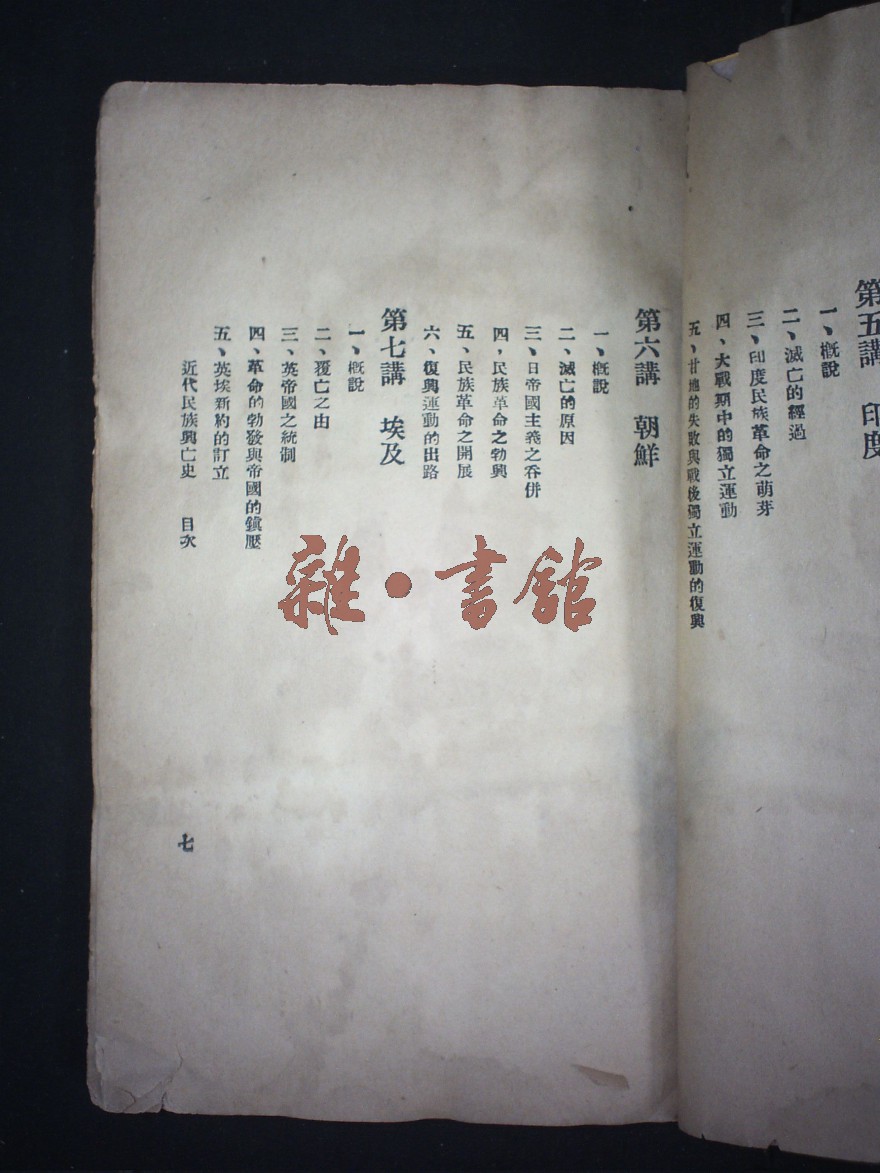 第五講　印度
一、槪說
二、滅亡的經過
三、印度民族革命之萌芽
四、大戰期中的獨立運動
五、甘地的失敗與戰後獨立運動的復興
第六講　朝鮮
一、槪說
二、滅亡的原因
三、日帝國主義之吞併
四，民族革命之勃興
五、民族革命之開展
六、復興運動的出路
第七講　埃及
一、槪說
二、覆亡之由
三、英帝國之統制
四、革命的勃發與帝國的鎭壓
五、英埃新約的訂立
近代民族興亡史　目次
七
雜·書館